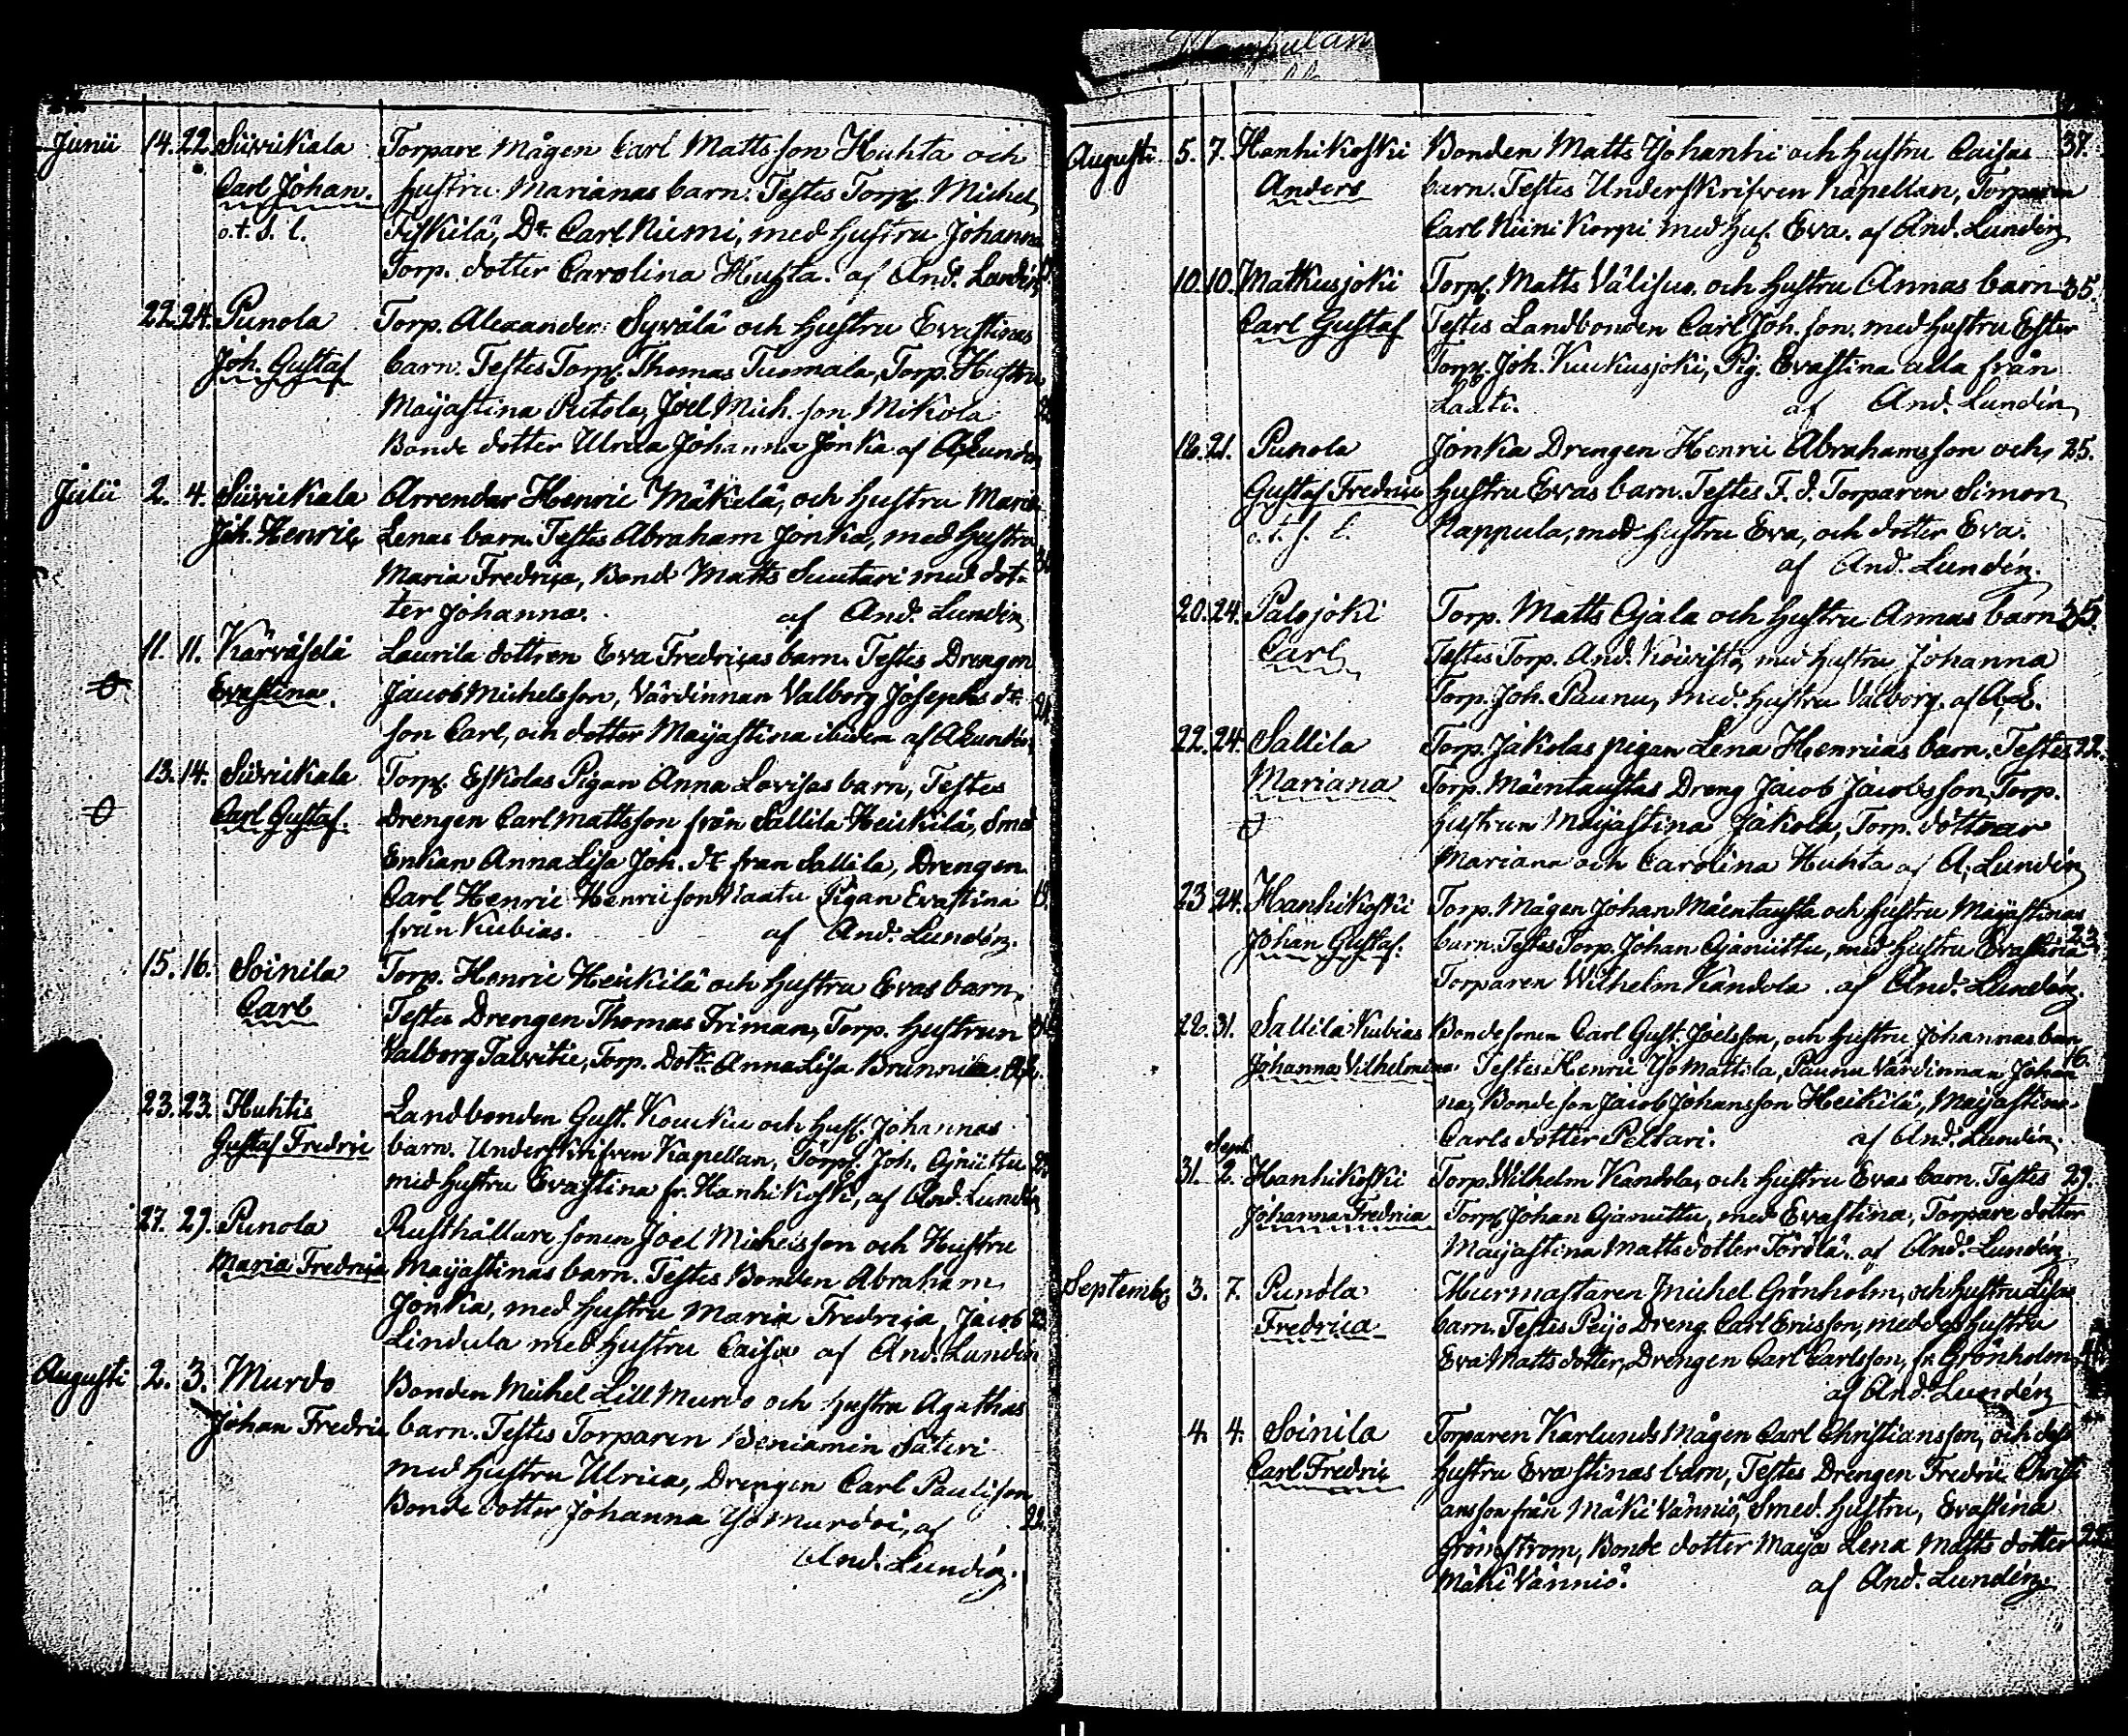 Junii 14. 22. Siivikala Torpare Mågen Carl Mattsson Huhta och
Carl Johan. hustru Marianas barn. Testes Torp. Michel
o.t.s.l. Fiskilä, Dr. Carl Niemi, med hustru Johanna
Torp. dotter Carolina Huhta. af And. Lundén
22. 24. Punola Torp. Alexander Syvälä och hustru Evastinas
Joh. Gustaf barn. Testes Torp. Thomas Tuomala, Torp. Hustru
Majastina Putola, Joel Mich. son Mikola
Bonde dotter Ulrica Johanna Jonka af A. Lundén
Julii 2. 4. Siivikala Arrendar Henric Mäkilä, och hustru Maria
Joh. Henric Lenas barn. Testes Abraham Jonka, med hustru
Maria Fredrica, Bond Matts Suutari med dot-
ter Johanna. af And. Lundén
11. 11. Kärväselä Laurila dottren Eva Fredricas barn. Testes Drengen
Evastina. Jacob Michelsson, Värdinnan Valborg Josephs dr.
son Carl, och dotter Majastina ibidem af A Lundén
13. 14. Siivikala Torp. Eskolas Pigan Anna Lovisas barn, Testes
Carl Gustaf. Drengen Carl Mattsson från Sallila Heickilä, Smed
Enkan Anna Lisa Joh. dr från Sallila, Drengen
Carl Henric Henricsson Pigan Evastina 19.
från Kubias. af And. Lundén.
15. 16. Soinila Torp. Henric Heickilä och hustru Evas barn.
Carl Testes Drengen Thomas Friman, Torp. hustrun
Valborg Talvitie, Torp. Dotr Anna Lisa Brunnila. A.L.
23. 23. Huhtis Landbonden Gust. Koucku och hust. Johannas
Gustaf Fredric barn. Underskrifven Kapellan, Torp. Joh. Ojanuttu
med hustru Evastina fr. Hanhikoski, af And. Lundén
27. 29. Punola Rusthållare sonen Joel Michelsson och Hustru
Maria Fredrica Majastinas barn. Testes Bonden Abraham
Jonka, med hustru Maria Fredrica, Jacob 23
Lindula med hustru Caisa af And. Lundén
Augusti 2. 3. Murdo Bonden Michel Lill Murdo och hustru Agathas
Johan Fredric barn. Testes Torparen Beniamin Säteri
med hustru Ulrica, Drengen Carl Paulisson
Bonde dotter Johanna Yso Murdoi, af 22.
And. Lundén.
Augusti 5. 7. Hanhikoski Bonden Matts Yohanhi och hustru Caisas 37.
Anders barn. Testes Underskrifven Kapellan, Torparen
Carl Niini Korpi med hus. Eva. af And. Lundén
10. 10. Matkusjoki Torp. Matts Välisuo och hustru Annas barn 35.
Carl Gustaf Testes Landbonden Carl Joh. son med hustru Ester
Torp. Joh. Kuckusjoki, Pig. Evastina alla från
af And. Lundén
18. 21. Punola Jonka Drengen Henric Abrahamsson och 25.
Gustaf Fredric hustru Evas barn. Testes F. d. Torparen Simon
o.t.s.l. Nappula, med hustru Eva, och dotter Eva.
af And. Lundén.
20. 24. Palojoki Torp. Matts Ojala och hustru Annas barn 35.
Carl Testes Torp. And. Koivisto, med hustru Johanna
Torp. Joh. Paunu, med hustru Valborg. af A.L.
22. 24. Sallila Torp. Jakolas pigan Lena Henricas barn. Testes 22.
Mariana Torp. Mäentaustas Dreng Jacob Jacobsson, Torp.
hustrun Majastina Jakola, Torp. döttrar
Mariana och Carolina Huhta af A. Lundén
23 24. Hanhikoski Torp. Mågen Johan Mäentausta och hustru Majastinas
Johan Gustaf. barn. Testes Torp. Johan Ojanuttu, med hustru Evastina 23.
Torparen Wilhelm Kandola af And. Lundén.
28. 31. Sallila Kubias Bondesonen Carl Gust. Joelsson, och hustru Johannas barn
Johanna Vilhelmina Testes Henric Yso Mattila, Paunu Värdinnan Johan-
na, Bondeson Jacob Johansson Heikilä, Majastina
Carls dotter Peltari. af And. Lundén.
Sept.
31. 2. Hanhikoski Torp. Wilhelm Kandola, och hustru Evas barn. Testes 29.
Johanna Fredrica Torp. Johan Ojanuttu, med Evastina, Torpare dotter
Majastina Matts dotter Törölä. af And. Lundén
Septembr. 3. 7. Punola Murmästaren Michel Grönholm, och hustru Lisas
Fredrica barn. Testes Peijo Dreng Carl Ericsson, med dess hustru
Eva Matts dotter, Drengen Carl Carlsson, fr. Grönholm
af And. Lundén
4. 4. Soinila Torparen Karlunds Mågen Carl Christiansson, och dess
Carl Fredric hustru Evastinas barn, Testes Drengen Fredric Christi-
ansson från Mäki Vänniö, Smed. hustru, Evastina
Grönström, Bonde dotter Maja Lena Matts dotter
Mäki Vänniö. af And. Lundén.